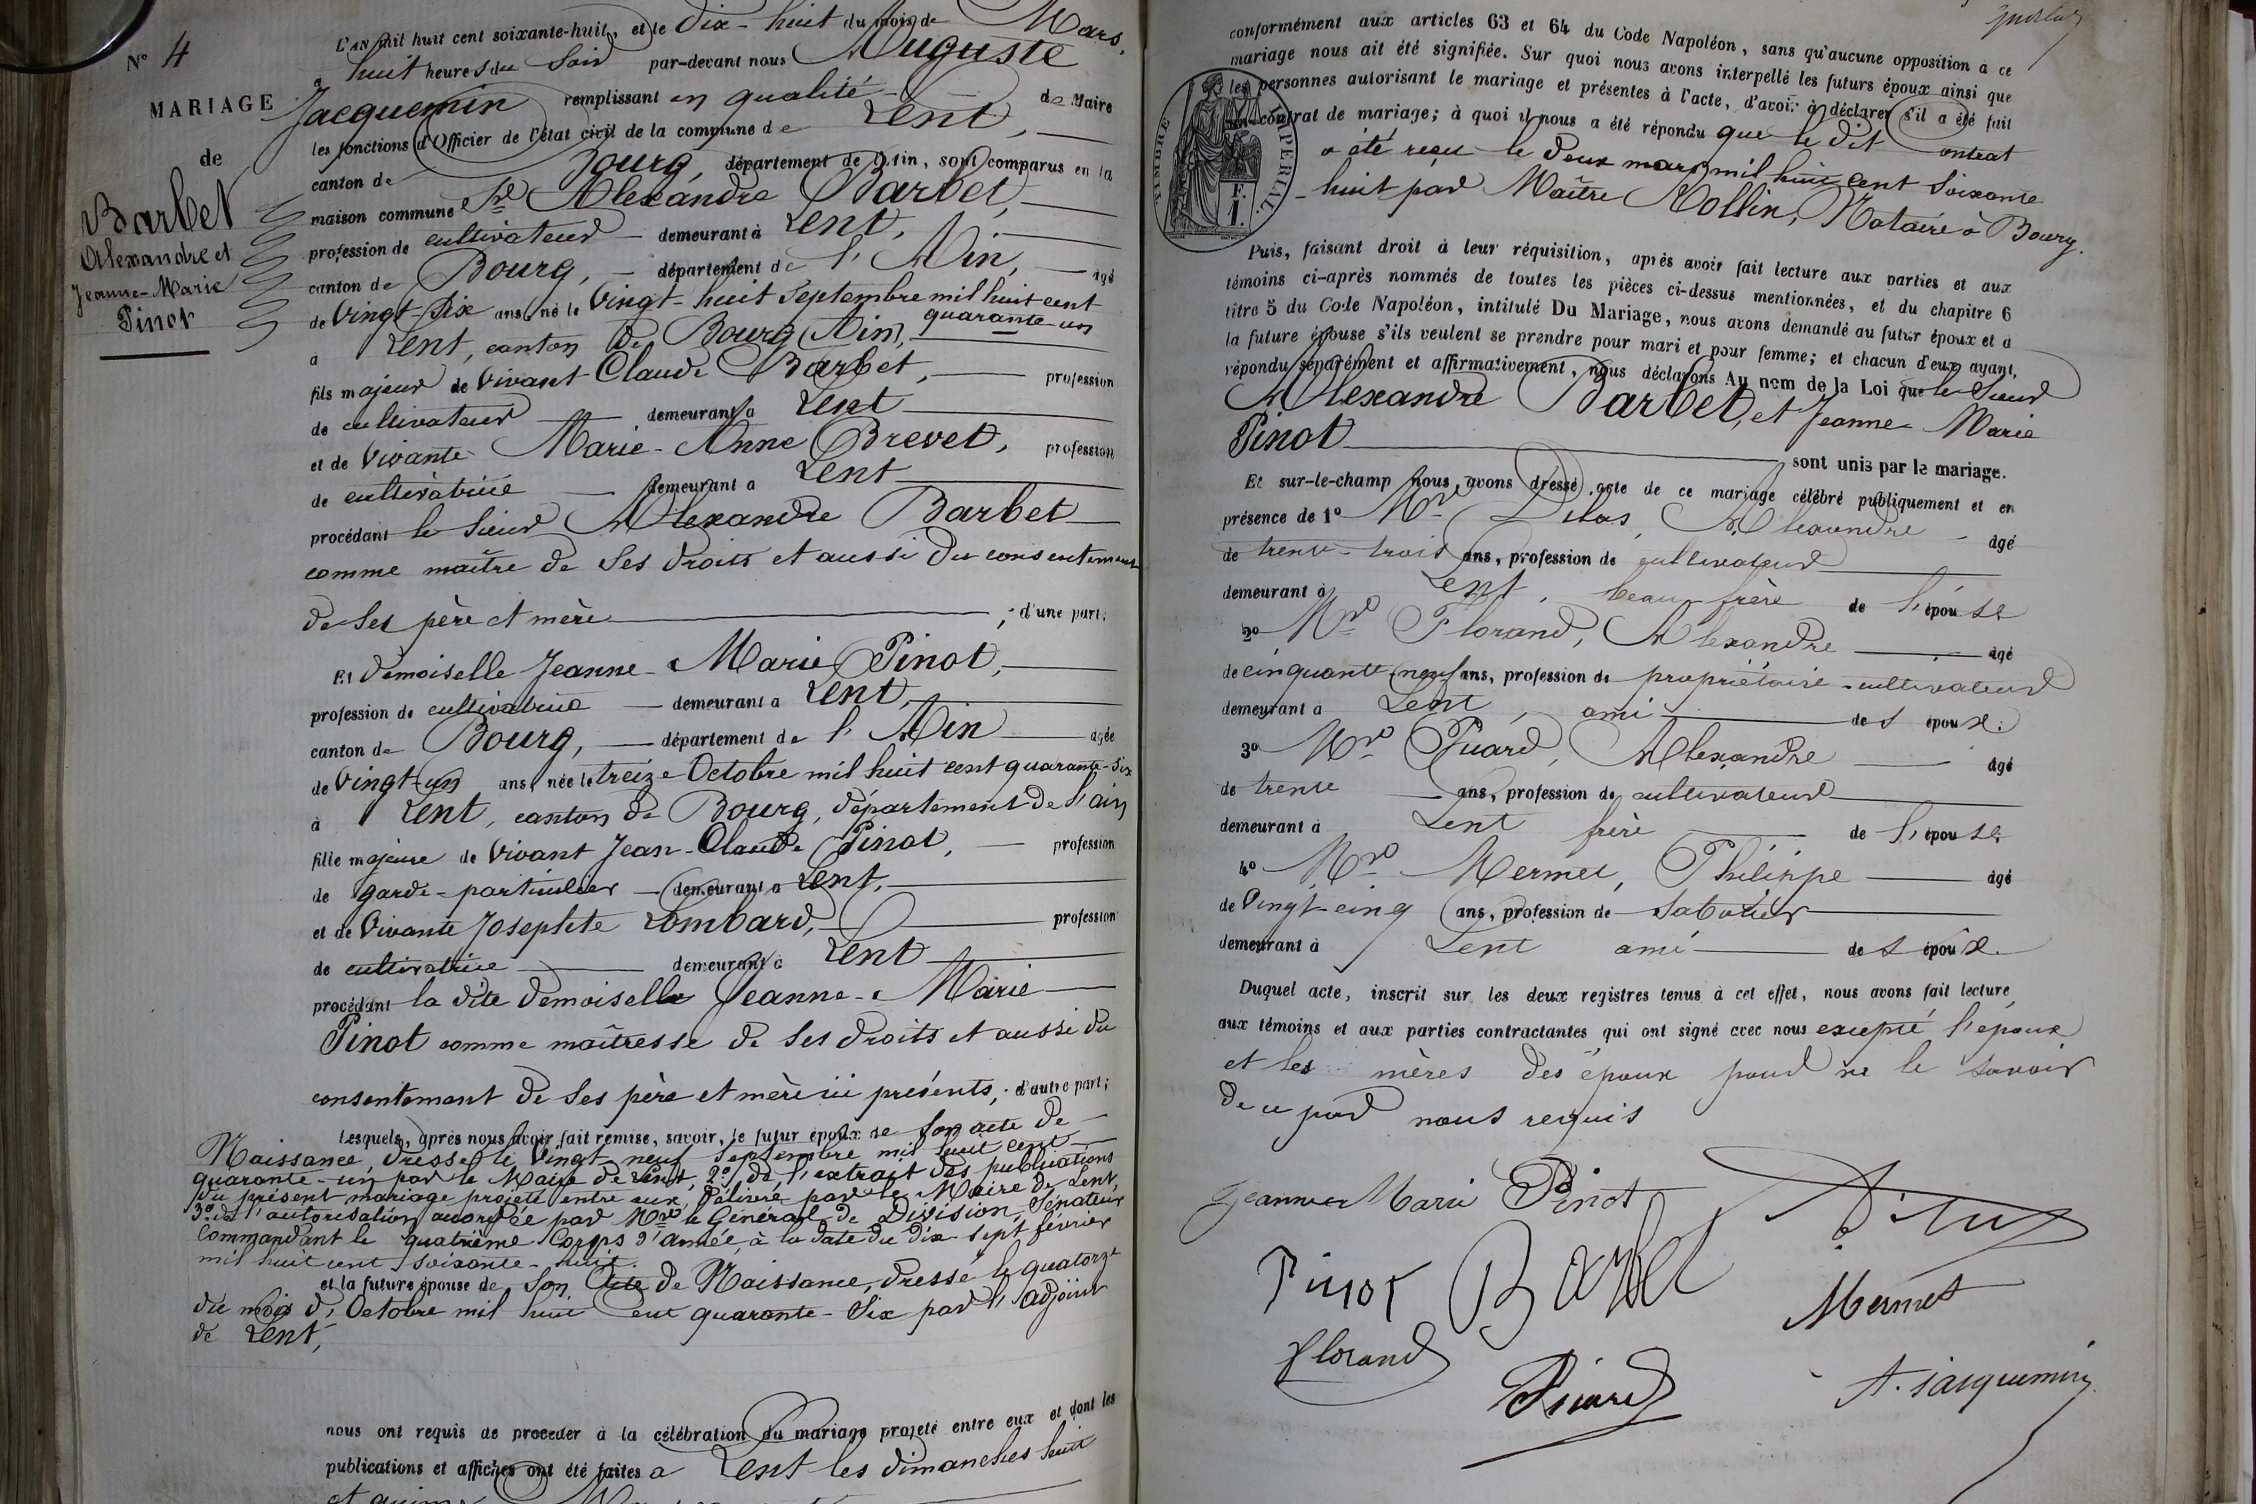 N° 4
MARIAGE
de
Barbet
Alexandre et
Jeanne-Marie
Pinot
L'AN mil huit cent soixante-huit, et le dix-huit du mois de Mars,
à huit heures du soir par-devant nous Auguste
Jacquemin remplissant en qualité de Maire
les fonctions d'Officier de l'état civil de la commune de Lent,
canton de Bourg, département de l'Ain, sont comparus en la
maison commune Sr Alexandre Barbet,
profession de cultivateur demeurant à Lent,
canton de Bourg, département de l'Ain, âgé
de vingt-six ans, né le vingt-huit septembre mil huit cent
quarante-un
à Lent, canton de Bourg (Ain),
fils majeur de vivant Claude Barbet, profession
de cultivateur demeurant à Lent
et de vivante Marie-Anne Brevet, profession
de cultivatrice demeurant à Lent
procédant le sieur Alexandre Barbet
comme maître de ses droits et aussi du consentement
de ses père et mère ; d'une part;
Et demoiselle Jeanne-Marie Pinot,
profession de cultivatrice demeurant à Lent,
canton de Bourg, département de l'Ain âgée
de vingt-un ans, née le treize Octobre mil huit cent quarante-six
à Lent, canton de Bourg, département de l'ain
fille majeure de vivant Jean-Claude Pinot, profession
de garde-particulier demeurant à Lent,
et de vivante Josephte Lombard, profession
de cultivatrice demeurant à Lent
procédant la dite demoiselle Jeanne-Marie
Pinot comme maîtresse de ses droits et aussi du
consentement de ses père et mère ici présents, ; d'autre part;
Lesquels, après nous avoir fait remise, savoir, le futur époux de son acte de
Naissance, dressé le vingt neuf septembre mil huit cent
quarante-un par le Maire de Lent, 2° de l'extrait des publications
du présent mariage projeté entre eux délivré par le Maire de Lent,
3° de l'autorisation accordée par Mr le Général de Division, Sénateur
Commandant le quatrième Corps d'armée, à la date du dix sept février
mil huit cent soixante-huit.
et la future épouse de son Acte de Naissance, dressé le quatorze
du mois d'Octobre mil huit cent quarante-six par l'adjoint
de Lent,
nous ont requis de procéder à la célébration du mariage projeté entre eux et dont les
publications et affiches ont été faites à Lent les dimanches huit
conformément aux articles 63 et 64 du Code Napoléon, sans qu'aucune opposition à ce
mariage nous ait été signifiée. Sur quoi nous avons interpellé les futurs époux ainsi que
les personnes autorisant le mariage et présentes à l'acte, d'avoir à déclarer s'il a été fait
un contrat de mariage; à quoi il nous a été répondu que le dit contrat
a été reçu le deux mars mil huit cent soixante
-huit par Maître Rollin, Notaire à Bourg.
TIMBRE IMPERIAL.
F.
1.
Puis, faisant droit à leur réquisition, après avoir fait lecture aux parties et aux
témoins ci-après nommés de toutes les pièces ci-dessus mentionnées, et du chapitre 6
titre 5 du Code Napoléon, intitulé Du Mariage, nous avons demandé au futur époux et à
la future épouse s'ils veulent se prendre pour mari et pour femme; et chacun d'eux ayant,
répondu séparément et affirmativement, nous déclarons Au nom de la Loi que le Sieur
Alexandre Barbet, et Jeanne-Marie
Pinot sont unis par le mariage.
Et sur-le-champ nous avons dressé acte de ce mariage célébré publiquement et en
présence de 1° Mr Dilas, Alexandre âgé
de trente-trois ans, profession de cultivateur
demeurant à Lent, beau-frère de l'épouse
2° Mr Florand, Alexandre âgé
de cinquante neuf ans, profession de propriétaire-cultivateur
demeurant à Lent, ami des époux.
3° Mr Alexandre âgé
de trente ans, profession de cultivateur
demeurant à Lent frère de l'épouse
4° Mr Mermet, Philippe âgé
de vingt-cinq ans, profession de sabotier
demeurant à Lent ami des époux.
Duquel acte, inscrit sur les deux registres tenus à cet effet, nous avons fait lecture
aux témoins et aux parties contractantes qui ont signé avec nous excepté l'époux
et les mères des époux pour ne le savoir
de ce par nous requis
Jeanne Marie Pinot
Pinot Barbet Mermet
Florand A. Jacquemin